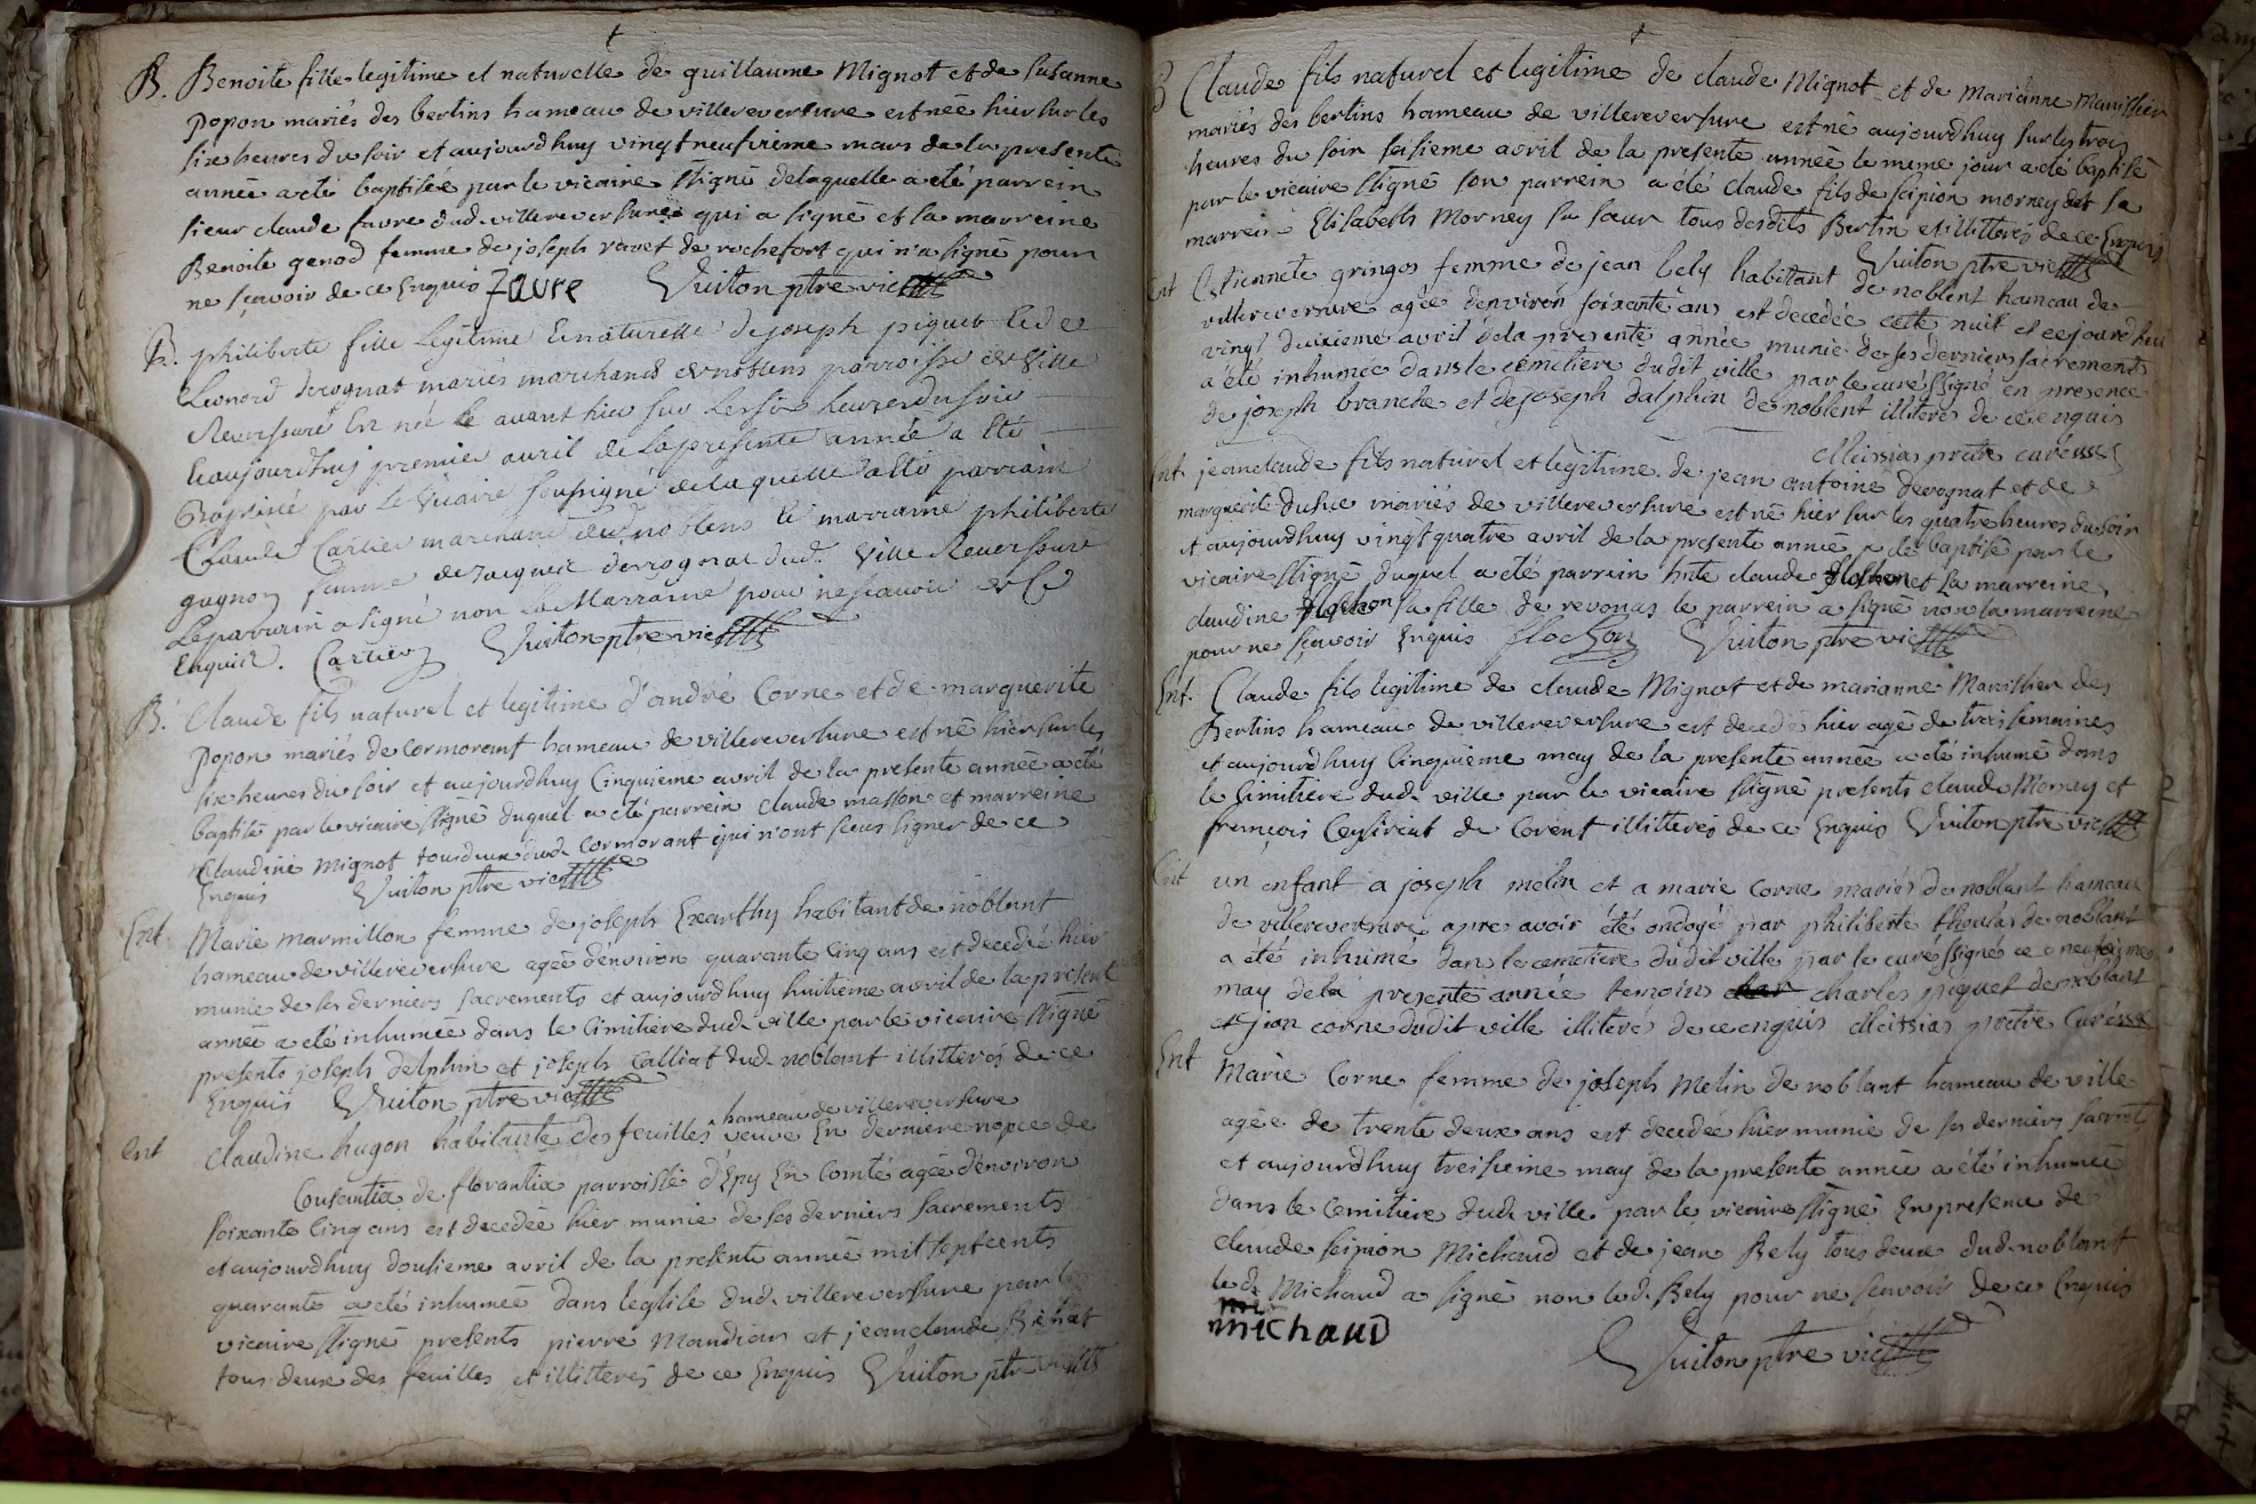 B. Benoite fille legitime et naturelle de guillaume Mignot et de Susanne
popon mariés des bertins hameau de villereversure est née hier sur les
six heures du soir et aujourdhuy vingt neufvieme mars de la presente
année a eté baptisée par le vicaire ssigné delaquelle a eté parrein
sieur claude favre dud. villereversure qui a signé et la marreine
Benoite genod femme de joseph ravet de rochefort qui n'a signé pour
ne sçavoir de ce Enquis Favre Vuiton ptre vic
B. philiberte fille Légitime Et naturelle de joseph piquet Et de
Leonord derognat mariés marchands de noblens parroisse de Ville
Reverssure En née le avant hier sur Les six heures du soir
Et aujourdhuy premier avril de La presente année a Eté
Baptisée par Le Vicaire soussigné de laquelle a Eté parrain
Claude Cartier marchand dud. noblens Et marraine philiberte
gagnon femme de Jacques derognat dud. Ville Reverssure
Le parrain a signé non La Marraine pour ne sçavoir de Ce
Enquise. Cartier Vuiton ptre vic
B. Claude fils naturel et legitime d'andré Corne et de marguerite
popon mariés de Cormorant hameau de villereversure est né hier sur les
six heures du soir et aujourdhuy Cinquieme avril de la presente année a eté
baptisé par le vicaire ssigné duquel a eté parrein claude masson et marreine
Claudine Mignot tous deux dud. Cormorant qui n'ont sceus signer de ce
Enquis Vuiton ptre vic
Ent. Marie Marmillon femme de joseph Exarthy habitant de noblant
hameau de villereversure ageé d'environ quarante Cinq ans est decedée hier
munie de ses derniers sacrements et aujourdhuy huitieme avril de la present
année a eté inhumée dans le Cimitiere dud. ville par le vicaire ssigné
presents joseph Delphin et joseph Calliat dud. noblant illitterés de ce
Enquis Vuiton ptre vic
Ent Claudine hugon habitante des feuilles hameau de villereversure veuve En derniere nopce de
Constantin de florantia parroisse d'Epy En Comté agée d'environ
soixante Cinq ans est decedée hier munie de ses derniers sacrements
et aujourdhuy dousieme avril de la presente année mil sept cents
quarante a eté inhumée dans l'eglise dud. villereversure par le
vicaire ssigné presents pierre Mandion et jean claude Bichat
tous deux des feuilles et illitterés de ce Enquis Vuiton ptre vic
B Claude fils naturel et legitime de claude Mignot et de Marianne Manithier
mariés des bertins hameau de villereversure est né aujourdhuy sur les trois
heures du soir seisieme avril de la presente année le meme jour a eté baptisé
par le vicaire ssigné son parrein a eté claude fils de scipion morney et sa
marreine Elisabeth Morney sa soeur tous desdits Bertin et illitterés de ce Enquis
Vuiton ptre vic
Ent Estiennete gringos femme de jean bely habitant de noblent hameau de
villereversure agée denviron soixante ans est decedée cette nuit et cejourdhui
vingt duixieme avril dela presente année munie de ses derniers sacrements
a été inhumée dans le cemetiere dudit ville par le curé ssigné en presence
de joseph branche et de joseph dalphin de noblent illiterés de ce enquis
Meissias pretre curé
Ent. jean claude fils naturel et legitime de jean antoine derognat et de
marguerite dusuc mariés de villereversure est né hier sur les quatre heures du soir
et aujourdhuy vingt quatre avril de la presente année a eté baptisé par le
vicaire ssigné duquel a eté parrein hnte claude flochon et la marreine
claudine flochon sa fille de revonas le parrein a signé non la marreine
pour ne sçavoir Enquis flochon Vuiton ptre vic
Ent. Claude fils legitime de claude Mignot et de marianne Manithier des
Bertins hameau de villereversure est decedé hier agé de trois semaines
et aujourdhuy Cinquieme may de la presente année a eté inhumé dans
le Cimitiere dud. ville par le vicaire ssigné presents claude Morney et
françois Ceysiriat de Corent illitterés de ce Enquis Vuiton ptre vic
Ent un enfant a joseph melin et a marie Corne mariés de noblant hameau
de villereversure apre avoir été ondoyé par philiberte de noblant
a été inhumé dan le cemetiere dudit ville par le curé ssigné ce neufieme
may dela presente année temoins charles piquet de noblant
et jean corne dudit ville illiterés de ce enquis Meissias pretre Curé
Ent Marie Corne femme de joseph Melin de noblant hameau de ville
agée de trente deux ans est decedée hier munie de ses derniers sacrets
et aujourdhuy treisieme may de la presente année a été inhumée
dans le Cemitiere dud. ville par le vicaire ssigné En presence de
claude scipion Michaud et de jean Bely tous deux dud. noblant
le d. Michaud a signé non led. Bely pour ne sçavoir de ce Enquis
michaud
Vuiton ptre vic